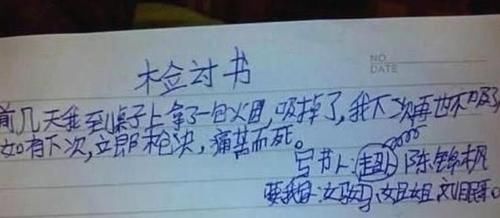 检讨书
NO
DATE
前几天我到桌子上拿了一包火因,吸掉了,我下次再也不吸了
如有下次,立即枪决,痛苦而死。
写书人: 陈锦枫
要我命:妈妈、姐姐、刘